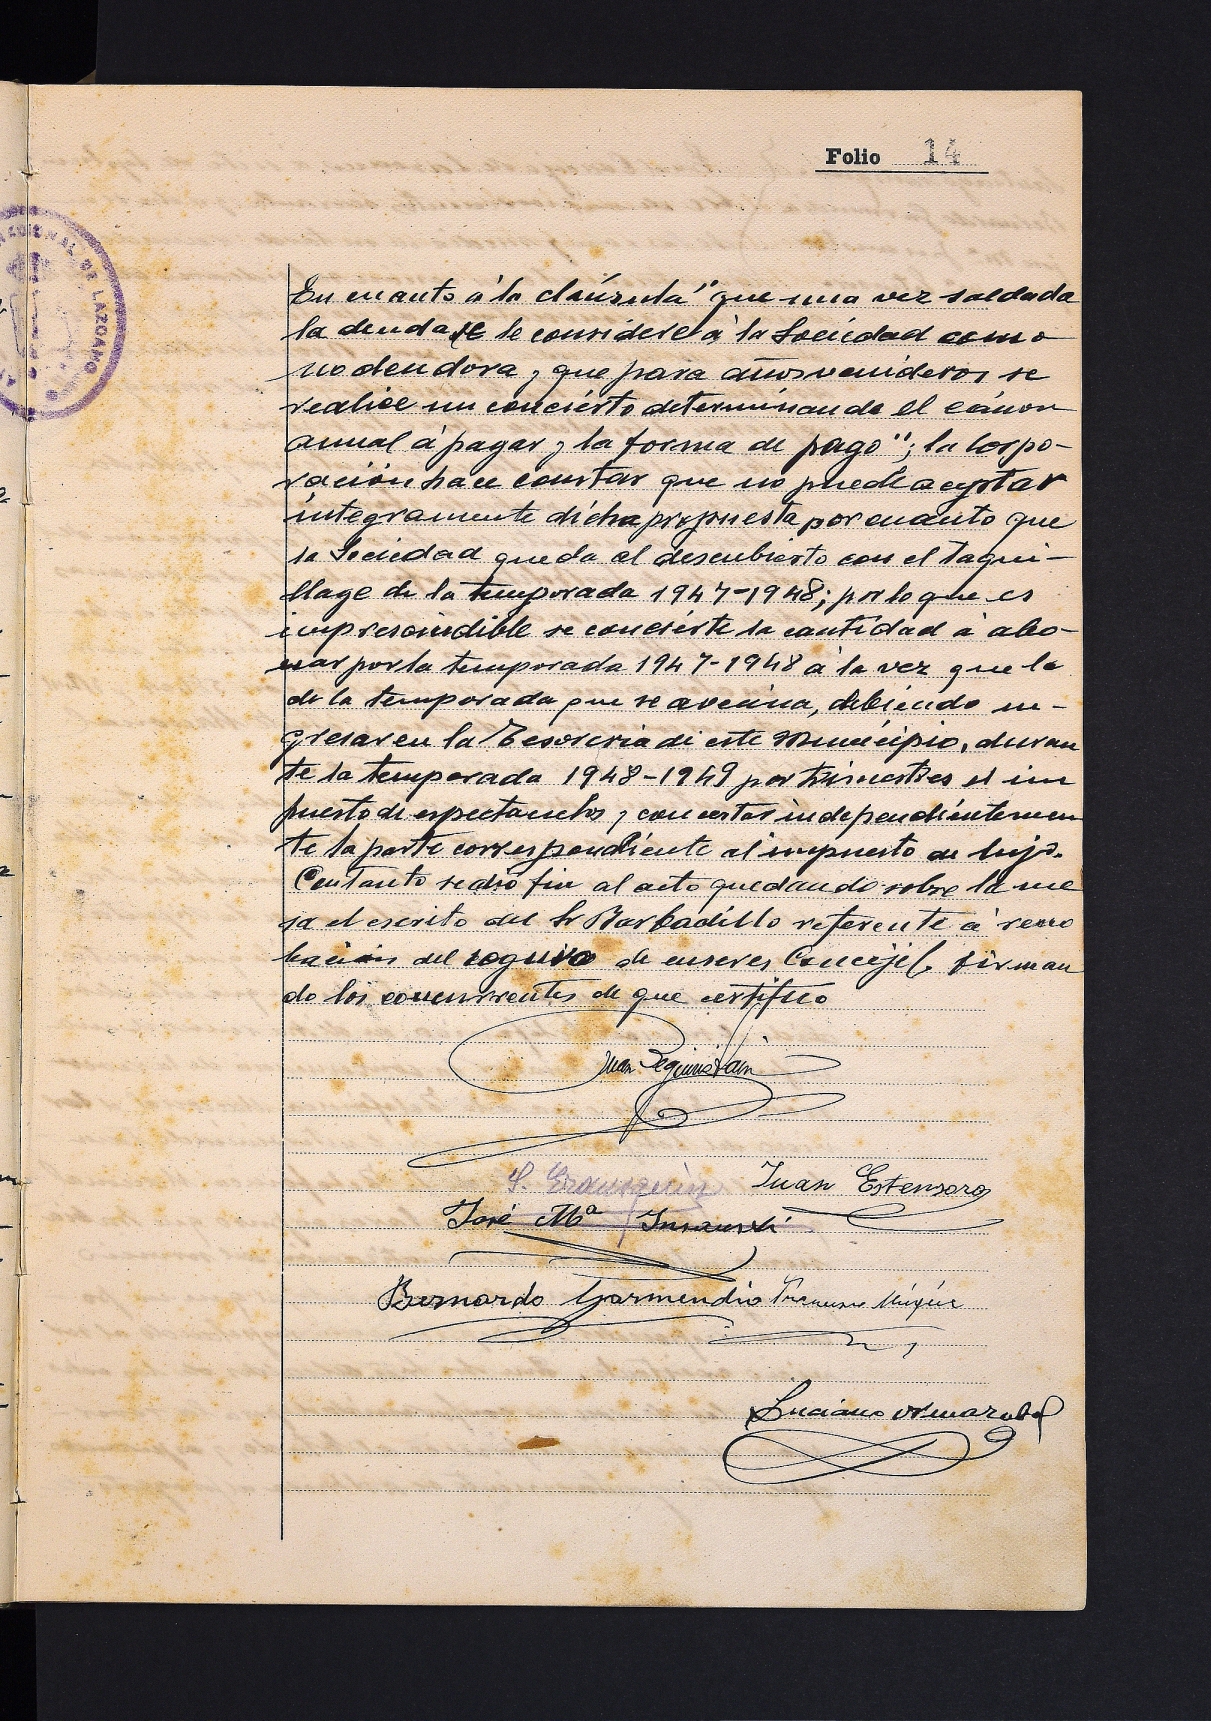 Folio 14
En cuanto á la cláusula "que una vez saldada
la deuda se le considere á la Sociedad como
no deudora y que para años venideros se
realice un concierto determinando el cánon
anual á pagar y la forma de pago"; la Corpo-
ración hace constar que no puede aceptar
integramente dicha propuesta por cuanto que
la Sociedad queda al descubierto con el taqui-
llage de la temporada 1947-1948; por lo que es
imprescindible se concierte la cantidad á abo-
nar por la temporada 1947-1948 á la vez que la
de la temporada que se avecina, debiendo in-
gresar en la Tesoreria de este Municipio, duran
te la temporada 1948-1949 por trimestres el im
puesto de espectaculos y concertar independientemen
te la parte correspondiente al impuesto de lujo.
Con tanto se dió fin al acto quedando sobre la me
sa el escrito del Sr Barbadillo referente á reno
bación del seguro de enseres Concejil. firman
do los concurrentes de que certifico
Juan
Juan Estensoro
José Mª Insausti
Bernardo Garmendia Francisco Múgica
Luciano Ormazabal
NACIONAL DE LAZCANO